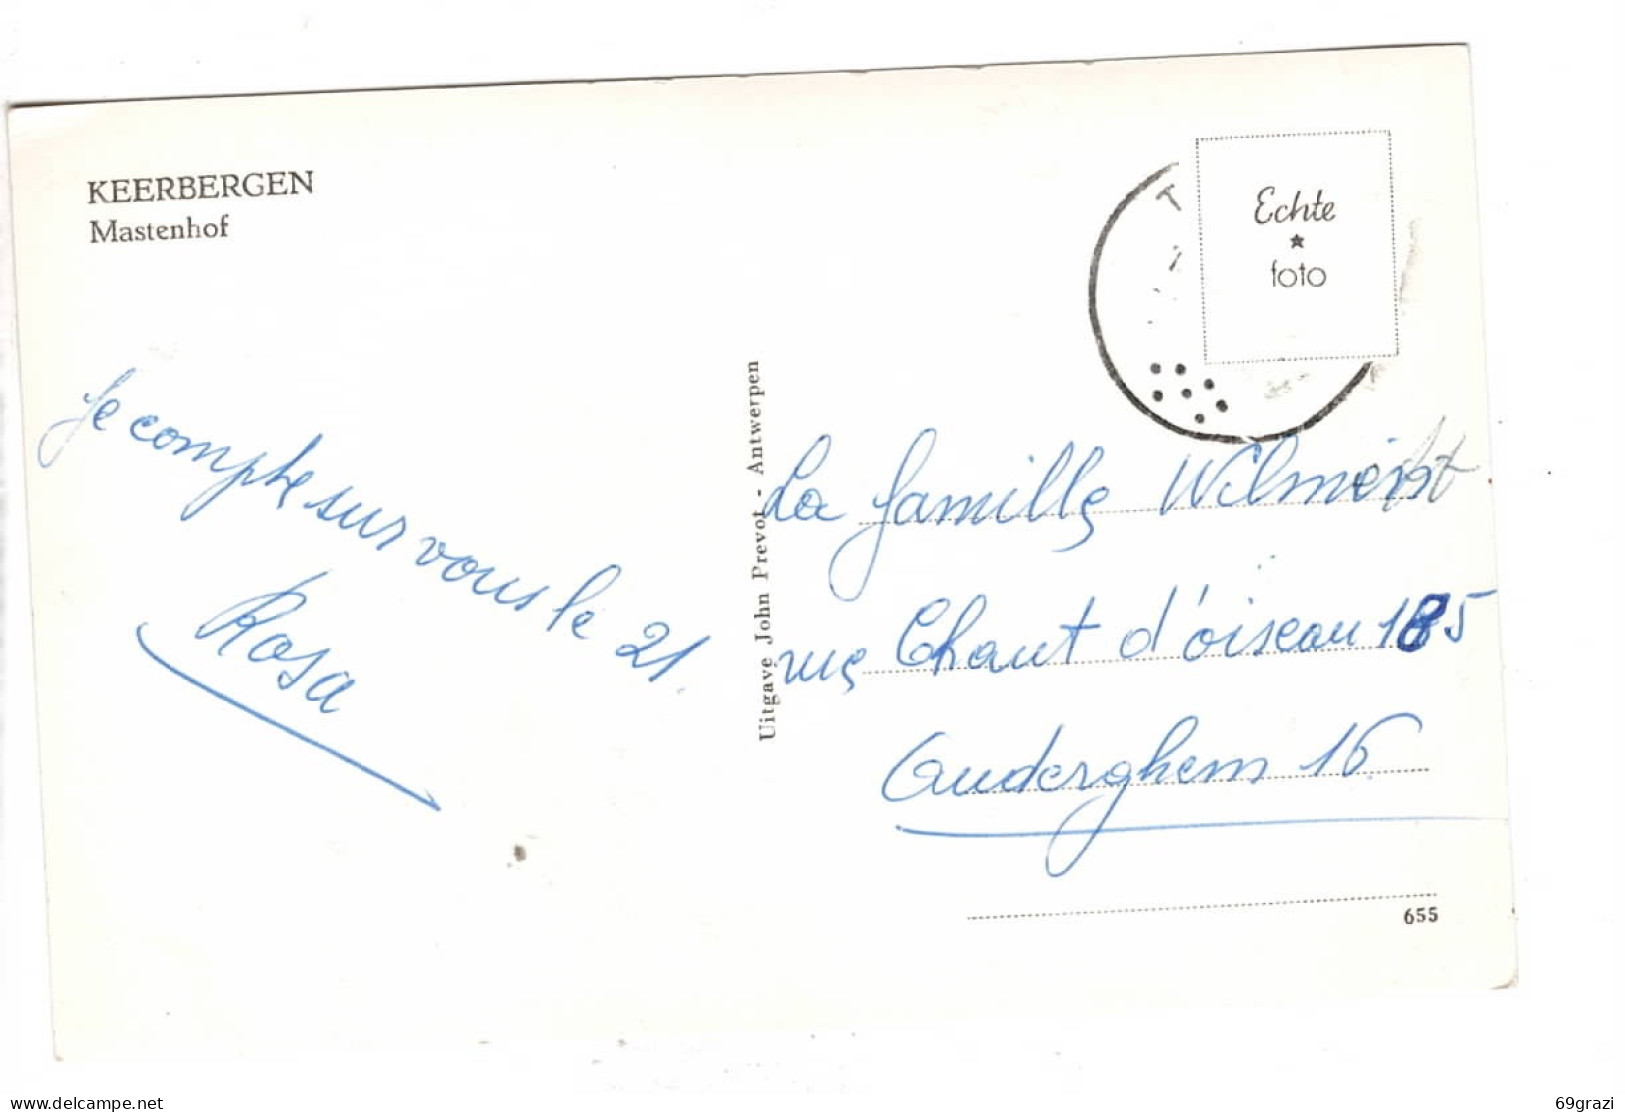 KEERBERGEN
Mastenhof
Echte
foto
Je compte sur vous le 21.
Rosa
Uitgave John Prevot - Antwerpen
La famille
rue Chant d'oiseau 185
Auderghem 16
655
www.delcampe.net
69grazi